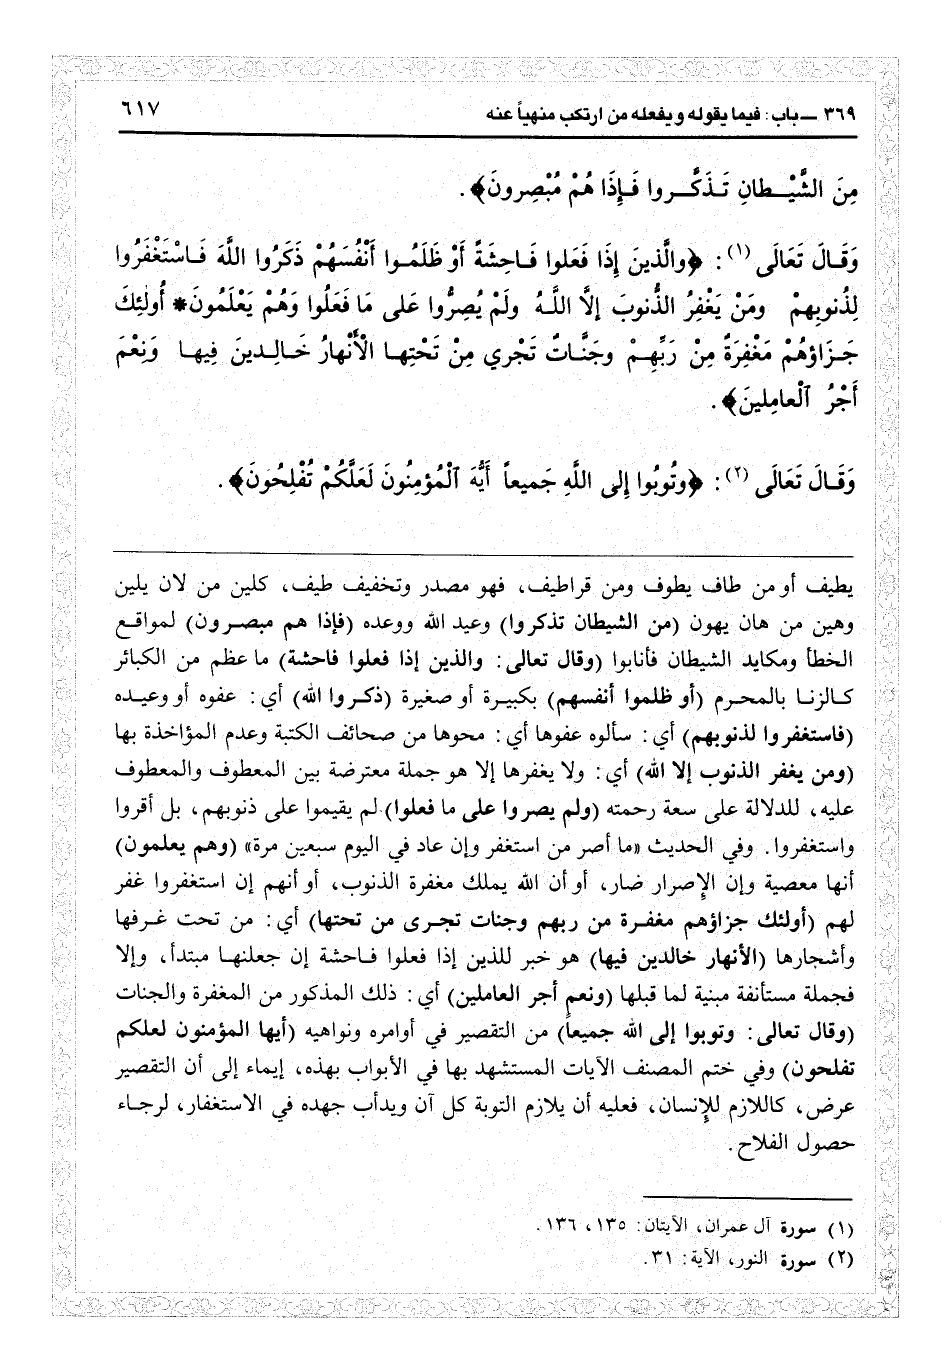 ٣٦٩ ــ باب: فيما يقوله ويفعله من ارتكب منهياً عنه ٦١٧
مِنَ الشَّيْـطانِ تَـذَكَّـروا فَـإِذَا هُمْ مُبْصِرونَ﴾.
وَقَـالَ تَعَالَى (١): ﴿والَّذينَ إِذَا فَعَلوا فَـاحِشَةً أَوْ ظَلَمُـوا أَنْفُسَهُمْ ذَكَرُوا اللَّهَ فَـاسْتَغْفَرُوا
لِذُنوبِهِمْ ومَنْ يَغْفِرُ الذُّنوبَ إلَّا اللَّـهُ ولَمْ يُصِرُّوا عَلى مَا فَعَلُوا وَهُمْ يَعْلَمُونَ* أُولٰئِكَ
جَـزَاؤهُمْ مَغْفِرَةٌ مِنْ رَبِّهِـمْ وجَنَّاتٌ تَجْري مِنْ تَحْتِهـا الْأَنْهارُ خَـالِـدينَ فِيهـا وَنِعْمَ
أَجْرُ ٱلْعامِلينَ﴾.
وَقَـالَ تَعَالَى (٢): ﴿وتُوبُوا إِلى اللَّهِ جَميعاً أَيُّهَ ٱلْمُؤْمِنُونَ لَعَلَّكُمْ تُفْلِحُونَ﴾.
يطيف أو من طاف يطوف ومن قراطيف، فهو مصدر وتخفيف طيف، كلين من لان يلين
وهين من هان يهون (من الشيطان تذكروا) وعيد الله ووعده (فإذا هم مبصـرون) لمواقـع
الخطأ ومكايد الشيطان فأنابوا (وقال تعالى: والذين إذا فعلوا فاحشة) ما عظم من الكبائر
كـالزنـا بالمحـرم (أو ظلموا أنفسهم) بكبيـرة أو صغيرة (ذكـروا الله) أي: عفوه أو وعيـده
(فاستغفروا لذنوبهم) أي: سألوه عفوها أي: محوها من صحائف الكتبة وعدم المؤاخذة بها
(ومن يغفر الذنوب إلا الله) أي: ولا يغفرها إلا هو جملة معترضة بين المعطوف والمعطوف
عليه، للدلالة على سعة رحمته (ولم يصروا على ما فعلوا) لم يقيموا على ذنوبهم، بل أقروا
واستغفروا. وفي الحديث «ما أصر من استغفر وإن عاد في اليوم سبعين مرة» (وهم يعلمون)
أنها معصية وإن الإصرار ضار، أو أن الله يملك مغفرة الذنوب، أو أنهم إن استغفروا غفر
لهم (أولئك جزاؤهم مغفـرة من ربهم وجنات تجـرى من تحتها) أي: من تحت غـرفها
وأشجارها (الأنهار خالدين فيها) هو خبر للذين إذا فعلوا فـاحشة إن جعلنهـا مبتدأ، وإلا
فجملة مستأنفة مبنية لما قبلها (ونعم أجر العاملين) أي: ذلك المذكور من المغفرة والجنات
(وقال تعالى: وتوبوا إلى الله جميعاً) من التقصير في أوامره ونواهيه (أيها المؤمنون لعلكم
تفلحون) وفي ختم المصنف الآيات المستشهد بها في الأبواب بهذه، إيماء إلى أن التقصير
عرض، كاللازم للإنسان، فعليه أن يلازم التوبة كل آن ويدأب جهده في الاستغفار، لرجـاء
حصول الفلاح.
(١) سورة آل عمران، الآيتان: ١٣٥، ١٣٦.
(٢) سورة النور، الآية: ٣١.